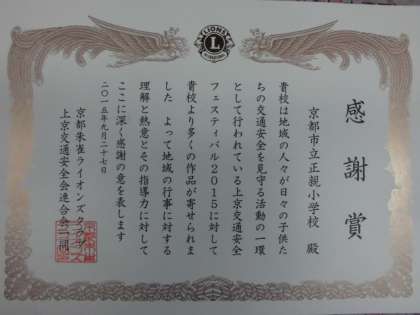 LIONS
L
感謝賞
京都市立正親小学校 殿
貴校は地域の人々が日々の子供た
ちの交通安全を見守る活動の一環
として行われている上京交通安全
フェスティバル2015に対して
貴校より多くの作品が寄せられま
した よって地域の行事に対する
理解と熱意とその指導力に対して
ここに深く感謝の意を表します
二〇一五年九月二十七日
京都朱雀ライオンズクラブ
上京交通安全会連合会一同